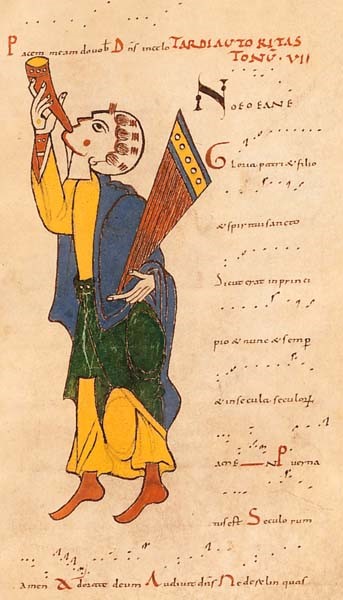 Pacem meam dovob Dns incelo TARDI AUTORITAS
TONU. VII
NOEOEANE
Gloria patri & filio
& spiritui sancto
Sicut erat in princi
pio & nunc & semp
& in secula seculorum
amen Puer na
tus est Seculorum
amen Adorate deum Audivit dns